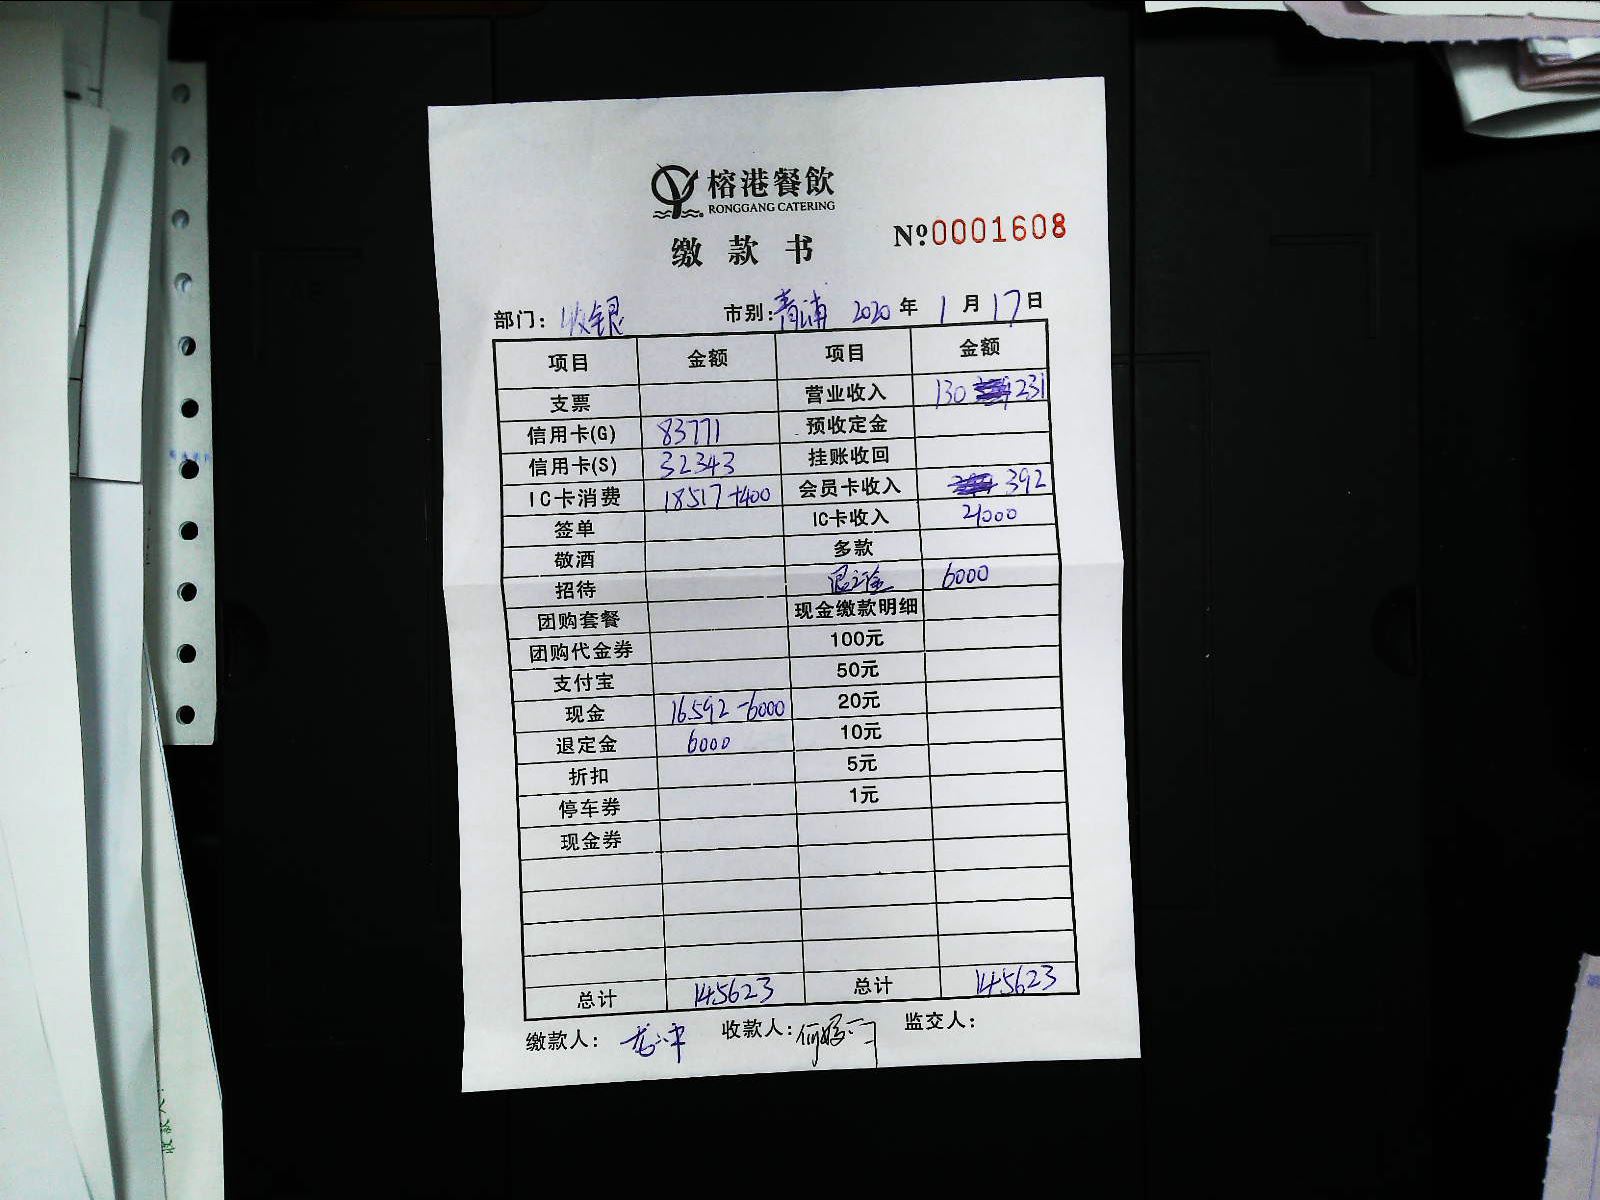 榕港餐飲
RONGGANG CATERING
缴款书
Nº 0001608
部门：收银 市别：青浦 2020年1月17日
项目 金额 项目 金额
支票 营业收入 130231
信用卡(G) 83771 预收定金
信用卡(S) 32343 挂账收回
IC卡消费 18517+400 会员卡收入 392
签单 IC卡收入 21000
敬酒 多款
招待 退定金 6000
团购套餐 现金缴款明细
团购代金券 100元
支付宝 50元
现金 16592-6000 20元
退定金 6000 10元
折扣 5元
停车券 1元
现金券
总计 145623 总计 145623
缴款人： 收款人： 监交人：
收款人